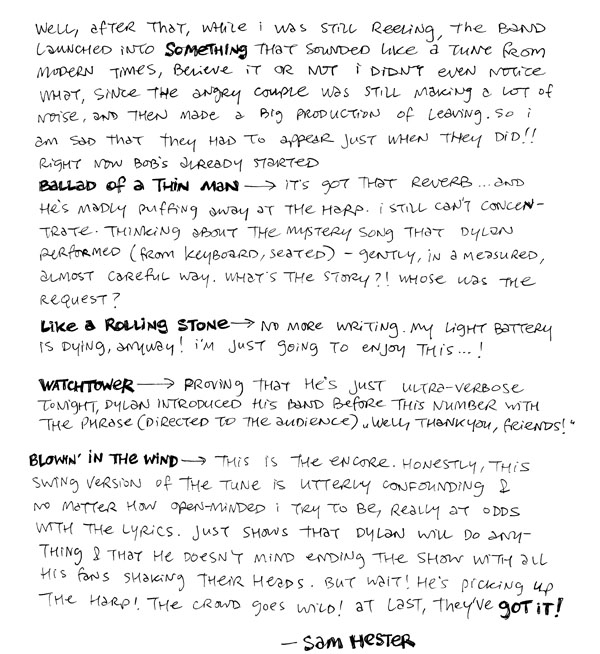 WELL, AFTER THAT, WHILE I WAS STILL REELING, THE BAND
LAUNCHED INTO SOMETHING THAT SOUNDED LIKE A TUNE FROM
MODERN TIMES, BELIEVE IT OR NOT I DIDN'T EVEN NOTICE
WHAT, SINCE THE ANGRY COUPLE WAS STILL MAKING A LOT OF
NOISE, AND THEN MADE A BIG PRODUCTION OF LEAVING. SO I
AM SAD THAT THEY HAD TO APPEAR JUST WHEN THEY DID!!
RIGHT NOW BOB'S ALREADY STARTED
BALLAD OF A THIN MAN → IT'S GOT THAT REVERB... AND
HE'S MADLY PUFFING AWAY AT THE HARP. I STILL CAN'T CONCEN-
TRATE. THINKING ABOUT THE MYSTERY SONG THAT DYLAN
PERFORMED (FROM KEYBOARD, SEATED) – GENTLY, IN A MEASURED,
ALMOST CAREFUL WAY. WHAT'S THE STORY?! WHOSE WAS THE
REQUEST?
LIKE A ROLLING STONE → NO MORE WRITING. MY LIGHT BATTERY
IS DYING, ANYWAY! I'M JUST GOING TO ENJOY THIS...!
WATCHTOWER → PROVING THAT HE'S JUST ULTRA-VERBOSE
TONIGHT, DYLAN INTRODUCED HIS BAND BEFORE THIS NUMBER WITH
THE PHRASE (DIRECTED TO THE AUDIENCE) „WELL, THANK YOU, FRIENDS!"
BLOWIN' IN THE WIND → THIS IS THE ENCORE. HONESTLY, THIS
SWING VERSION OF THE TUNE IS UTTERLY CONFOUNDING &
NO MATTER HOW OPEN-MINDED I TRY TO BE, REALLY AT ODDS
WITH THE LYRICS. JUST SHOWS THAT DYLAN WILL DO ANY-
THING & THAT HE DOESN'T MIND ENDING THE SHOW WITH ALL
HIS FANS SHAKING THEIR HEADS. BUT WAIT! HE'S PICKING UP
THE HARP! THE CROWD GOES WILD! AT LAST, THEY'VE GOT IT!
– SAM HESTER